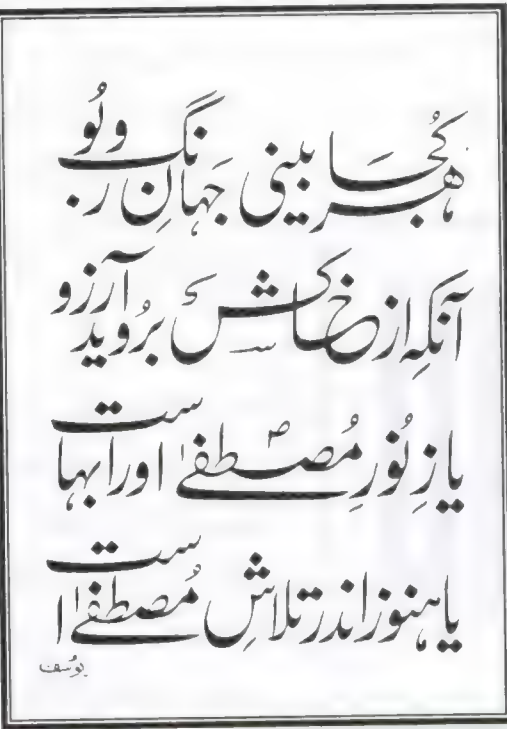 ہر کُجا بینی جہانِ رنگ و بُو
آنکہ از خاکش بروید آرزو
یا زِ نُورِ مُصطفےٰؐ او را بہاست
یا ہنوز اندر تلاشِ مُصطفےٰ است
یوسف